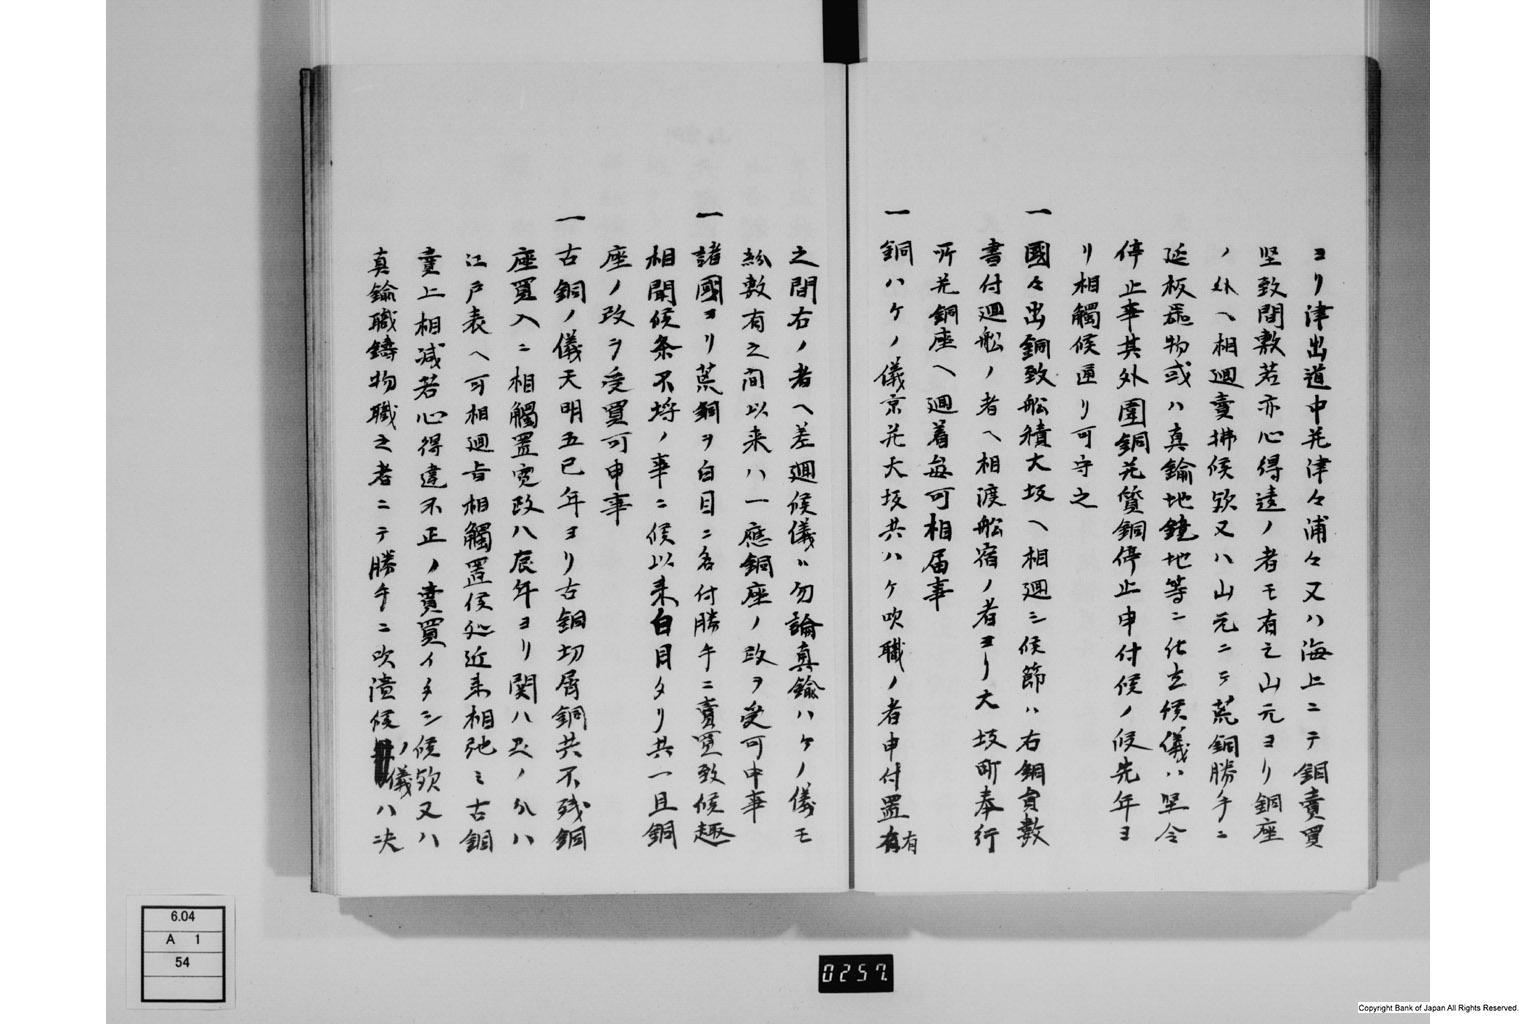 ヨリ津出道中并津々浦々又ハ海上ニテ銅賣買
堅致間敷若亦心得違ノ者モ有之山元ヨリ銅座
ノ外ヘ相廻賣拂候欤又ハ山元ニテ荒銅勝手ニ
延板器物或ハ真鍮地鏡地等ニ仕立候儀ハ堅令
停止事其外圍銅并質銅停止申付候ノ候先年ヨ
リ相觸候通リ可守之
一 國々出銅致舩積大坂ヘ相廻シ候節ハ右銅員數
書付廻舩ノ者ヘ相渡舩宿ノ者ヨリ大坂町奉行
所并銅座ヘ廻着毎可相届事
一 銅ハケノ儀京并大坂共ハケ吹職ノ者申付置有
之間右ノ者ヘ差廻候儀ハ勿論真鍮ハケノ儀モ
紛敷有之間以来ハ一應銅座ノ改ヲ受可申事
一 諸國ヨリ荒銅ヲ白目ニ名付勝手ニ賣買致候趣
相聞候条不埒ノ事ニ候以来白目タリ共一且銅
座ノ改ヲ受買可申事
一 古銅ノ儀天明五巳年ヨリ古銅切屑銅共不残銅
座買入ニ相觸置寛政八辰年ヨリ関八州ノ分ハ
江戸表ヘ可相廻旨相觸置候処近来相弛ミ古銅
賣上相减若心得違不正ノ賣買イタシ候欤又ハ
真鍮職鑄物職之者ニテ勝手ニ吹潰候ノ儀ハ决
6.04
A 1
54
0257.
Copyright Bank of Japan All Rights Reserved.